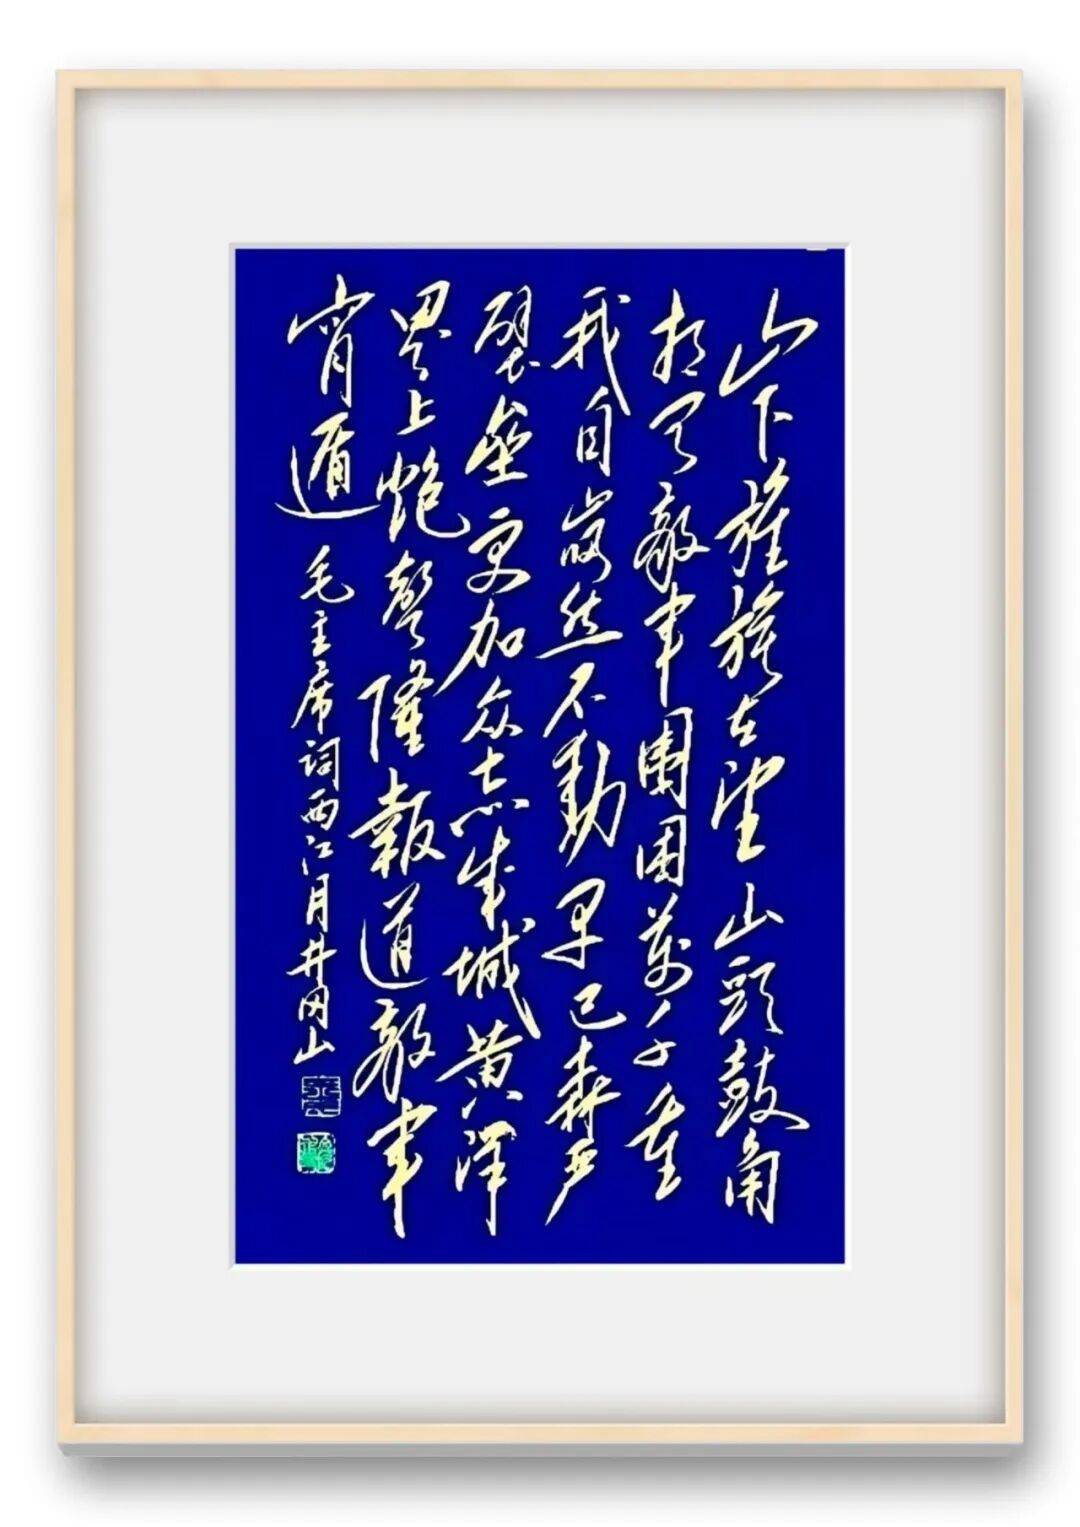 山下旌旗在望山頭鼓角
相闻敵军圍困萬千重
我自岿然不動早已森严
壁垒更加众志成城黄洋
界上炮聲隆報道敵军
宵遁
毛主席词西江月井冈山